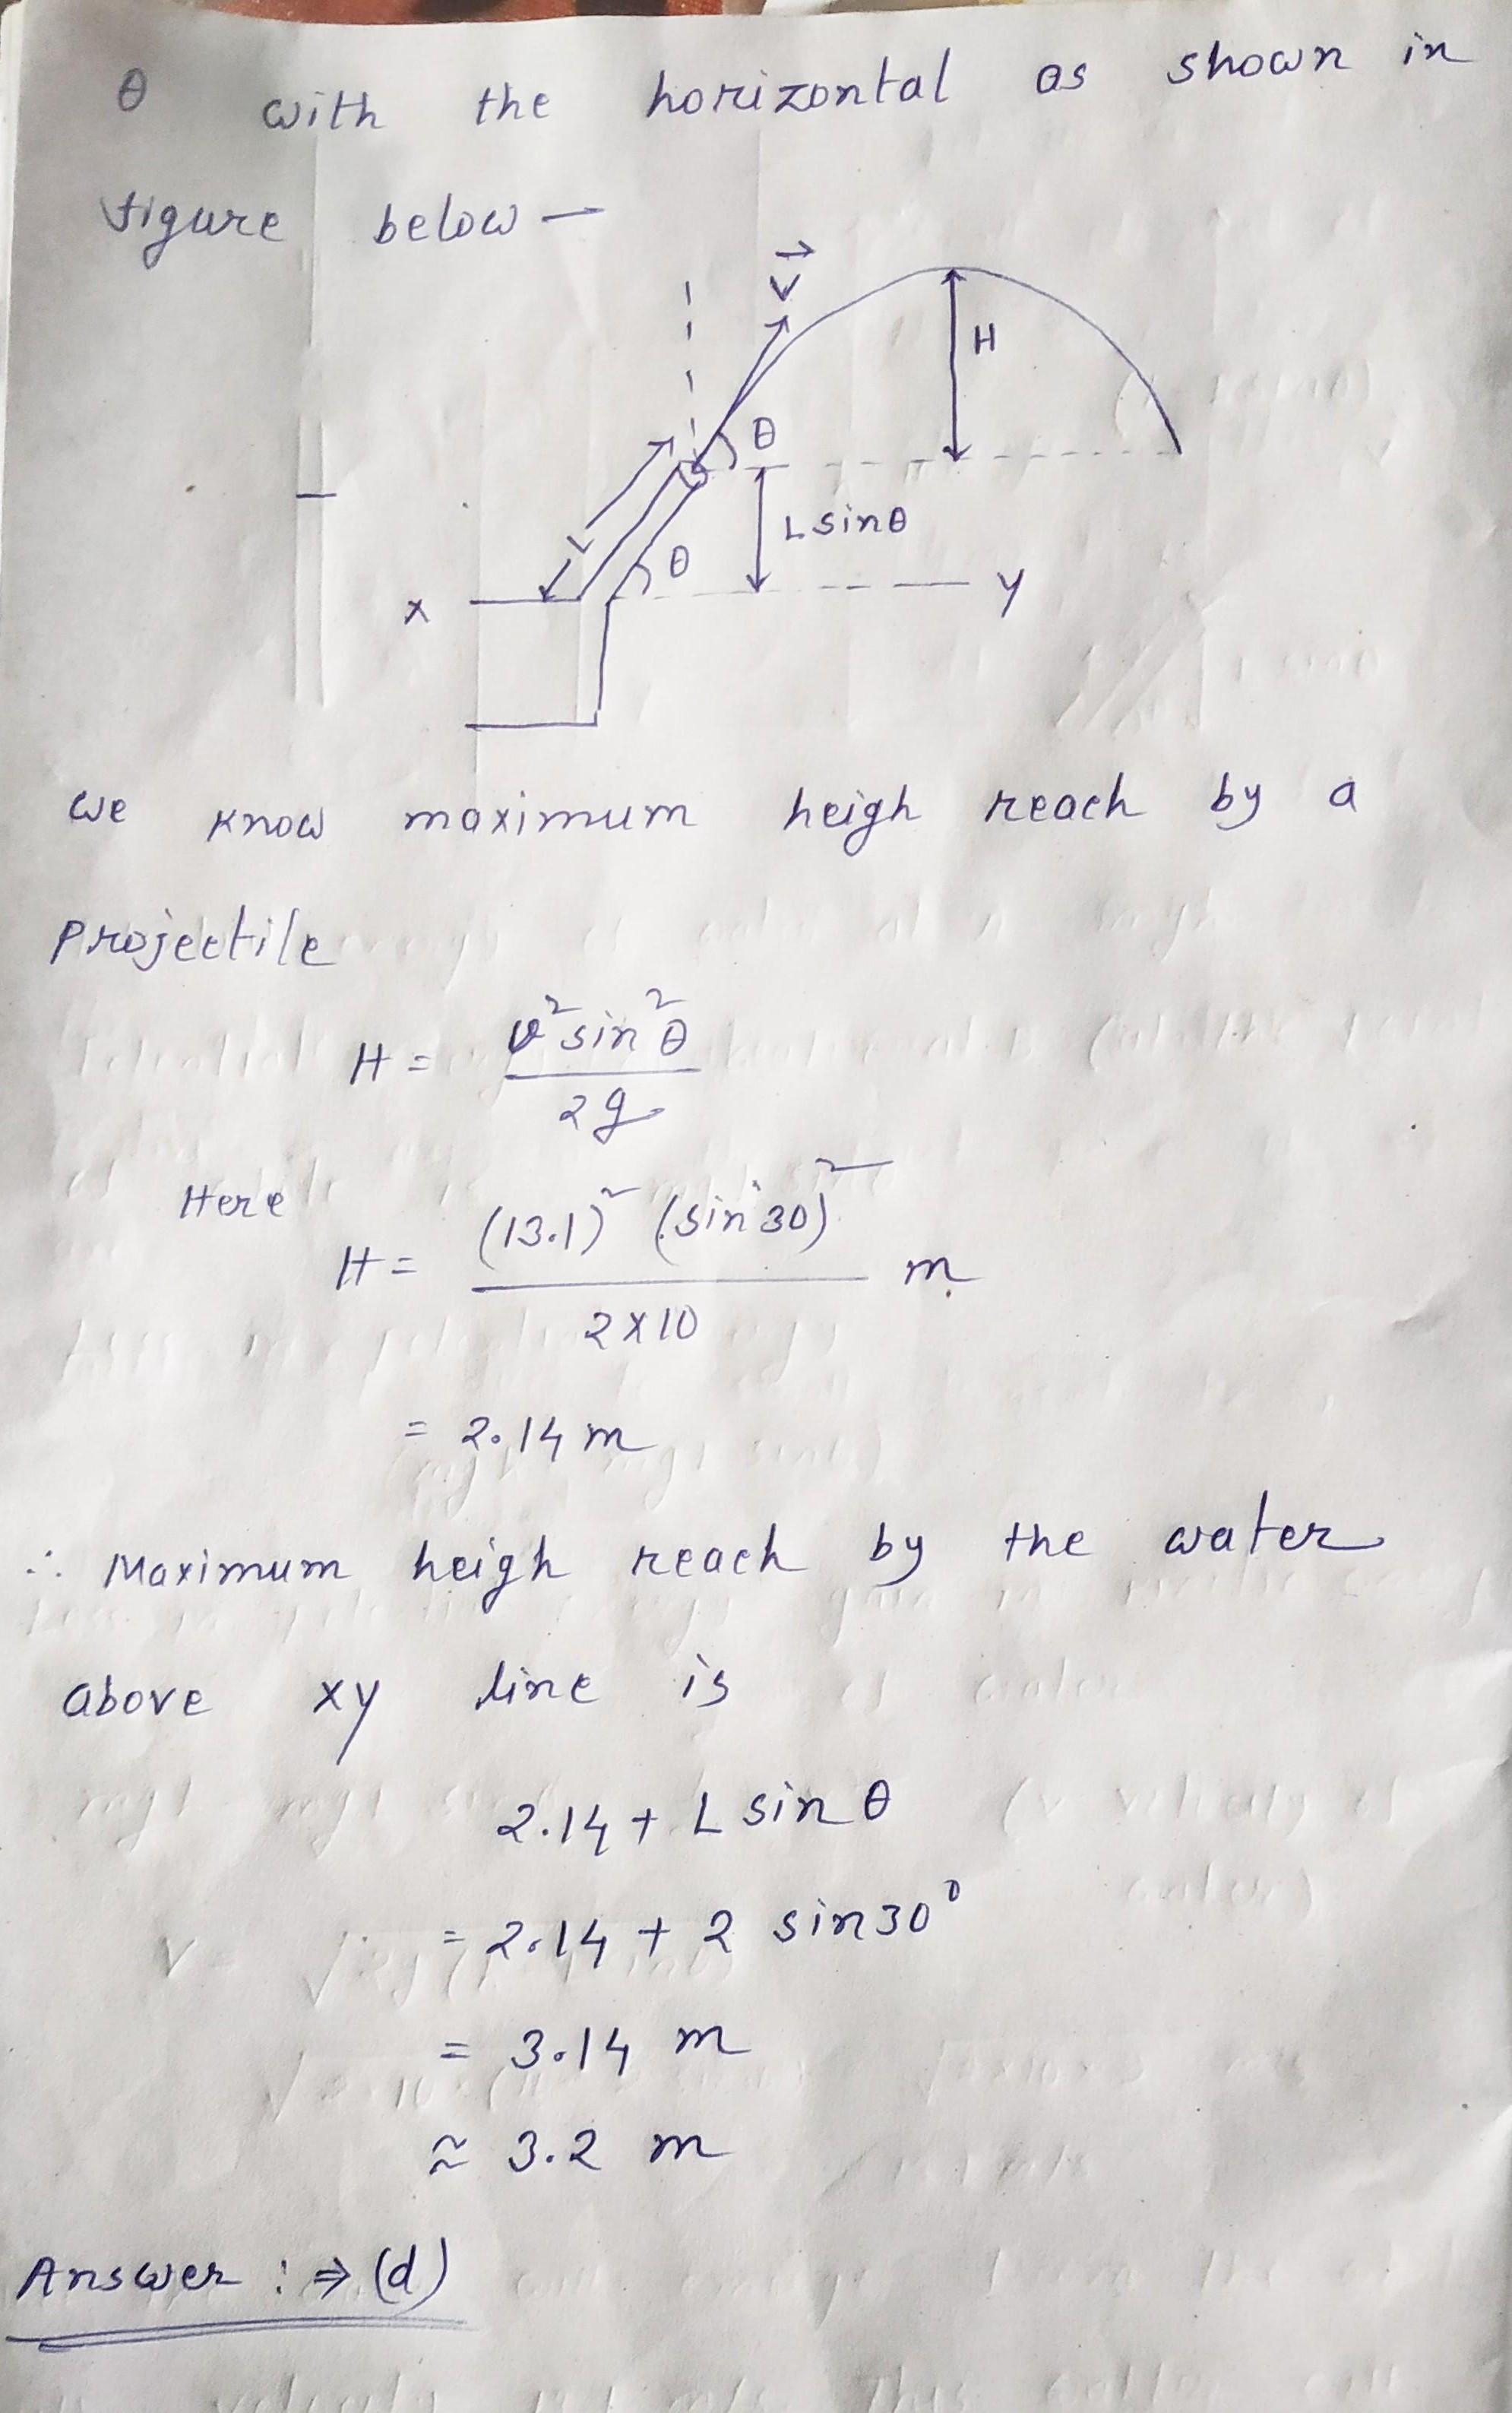 θ with the horizontal as shown in
figure below —
V
H
θ
L
L sinθ
θ
x
y
we know maximum heigh reach by a
projectile
H = v² sin² θ / 2g
Here
H = (13.1)² (sin 30)² / 2 x 10 m
= 2.14 m
∴ Maximum heigh reach by the water
above xy line is
2.14 + L sin θ
= 2.14 + 2 sin 30°
= 3.14 m
≈ 3.2 m
Answer : ⇒ (d)